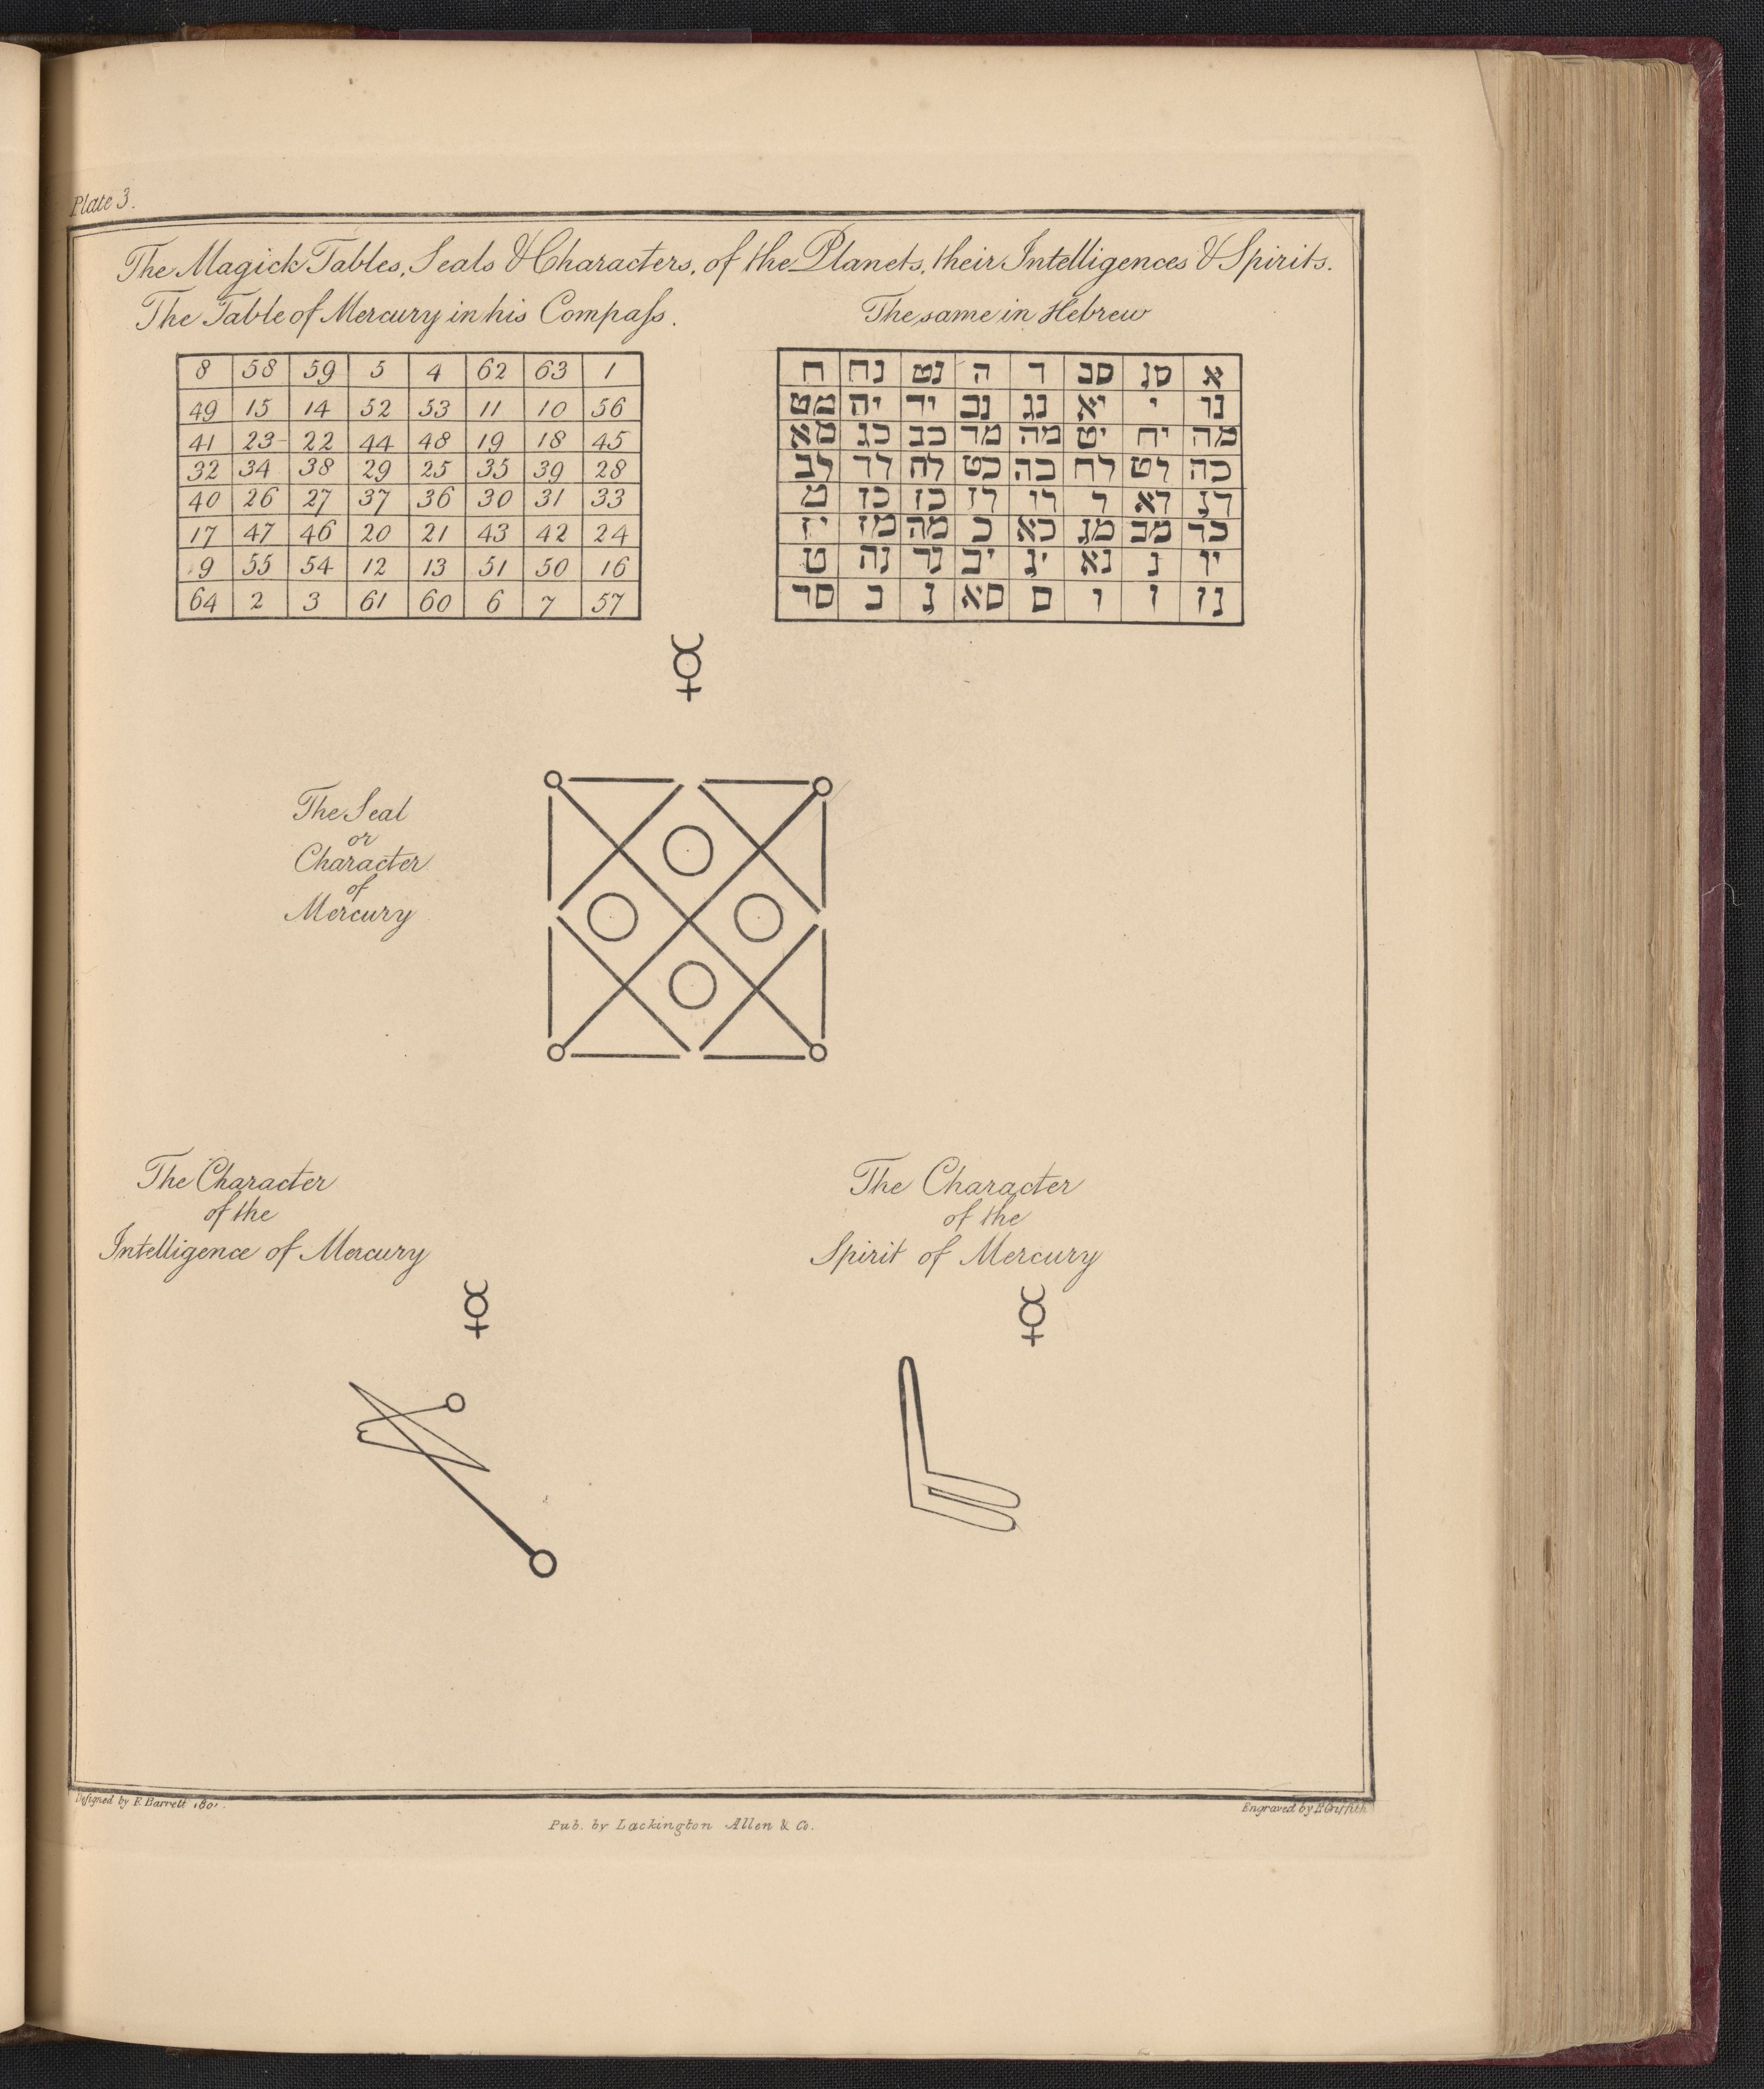 Plate 3.
The Magick Tables, Seals & Characters, of the Planets, their Intelligences & Spirits.
The Table of Mercury in his Compaſs.
8 58 59 5 4 62 63 1
49 15 14 52 53 11 10 56
41 23 22 44 48 19 18 45
32 34 38 29 25 35 39 28
40 26 27 37 36 30 31 33
17 47 46 20 21 43 42 24
9 55 54 12 13 51 50 16
64 2 3 61 60 6 7 57
The same in Hebrew
א סנ סב ד ה נט נח ח
נו י יא נג נב יד יה מט
מה יח יט מה מד כב כג מא
כה לט לח כה כט לח לד לב
כד מב מג כא כ מה מז יז
יו נ נא יג יב נד נה ט
נז ז ו ס סא נ ב סד
☿
The Seal
or
Character
of
Mercury
The Character
of the
Intelligence of Mercury
☿
The Character
of the
Spirit of Mercury
☿
Deſigned by F. Barrett 1801.
Engraved by R Griffith
Pub. by Lackington Allen & Co.